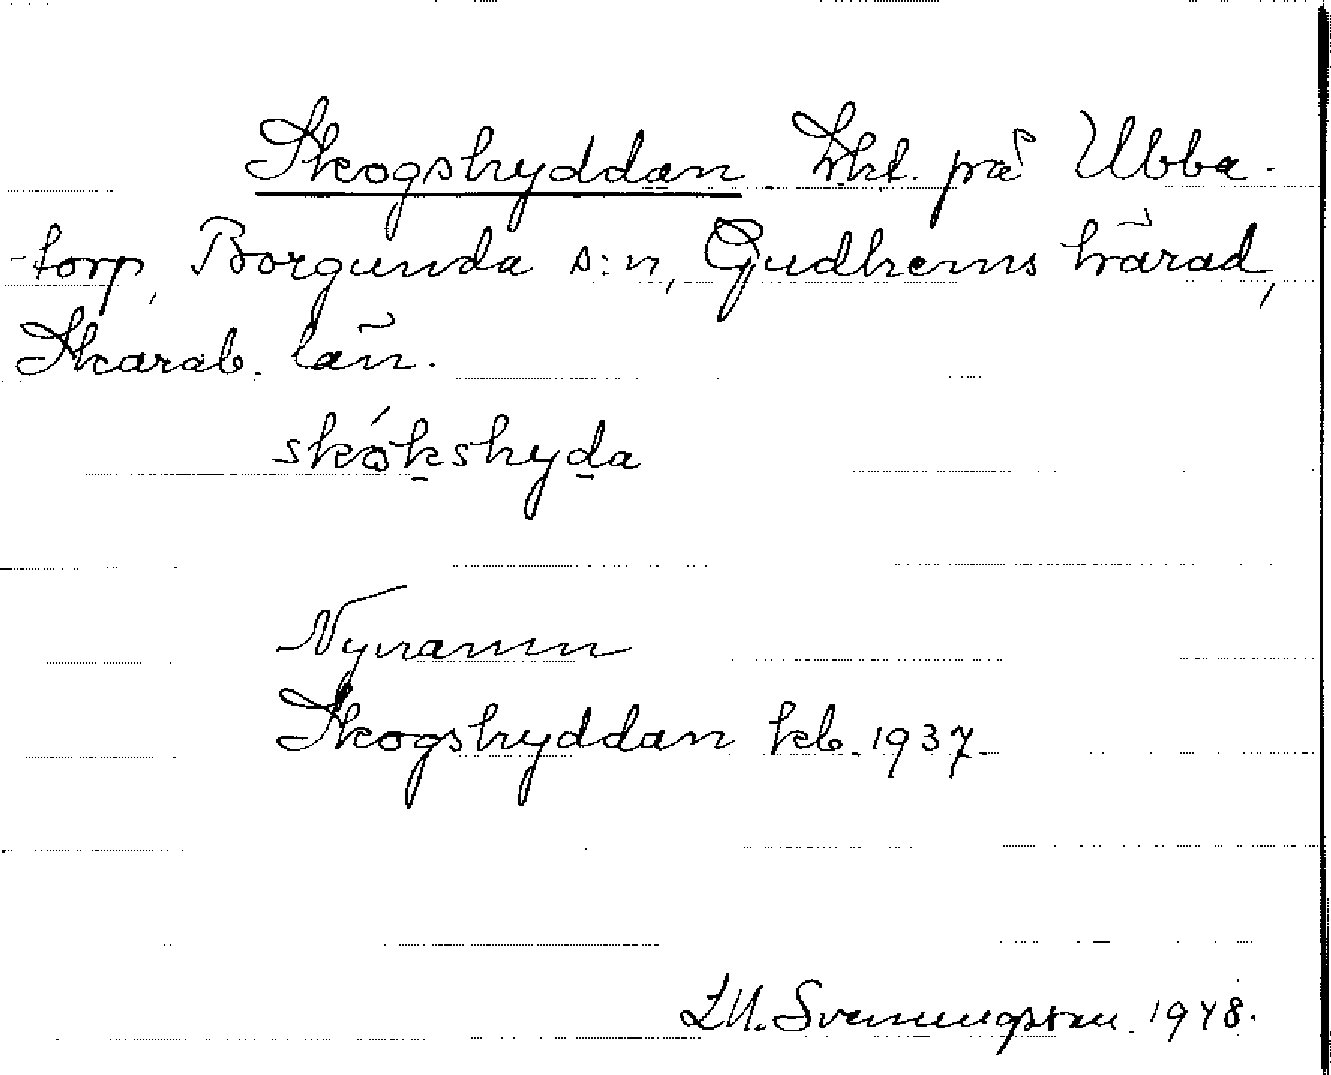 Skogshyddan lht. på Ubba-
torp, Borgunda s:n, Gudhems härad,
Skarab. län.
skókshyda
Nynamn
Skogshyddan kb. 1937.
Svenungsson. 1948.